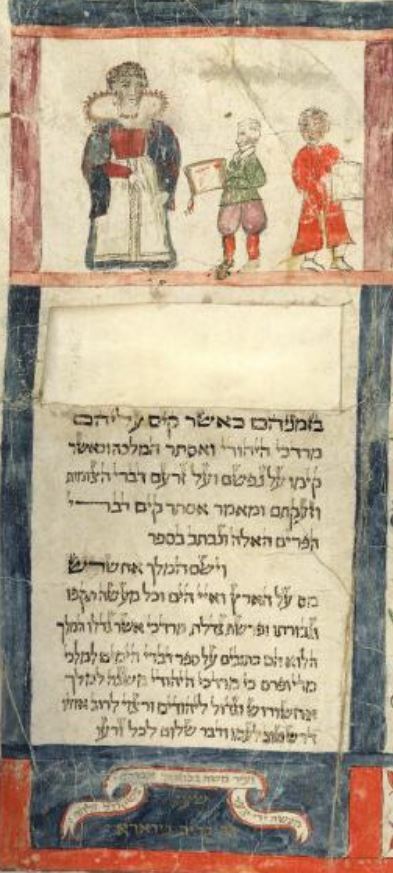 בזמניהם כאשר קים עליהם
מרדכי היהודי ואסתר המלכה וכאשר
קימו על נפשם ועל זרעם דברי הצומות
וזעקתם ומאמר אסתר קים דברי
הפרים האלה ונכתב בספר
וישם המלך אחשרש
מס על הארץ ואיי הים וכל מעשה תקפו
וגבורתו ופרשת גדלת מרדכי אשר גדלו המלך
הלוא הם כתובים על ספר דברי הימים למלכי
מדי ופרס כי מרדכי היהודי משנה למלך
אחשורוש וגדול ליהודים ורצוי לרוב אחיו
דרש טוב לעמו ודבר שלום לכל זרעו
מעשה ידי